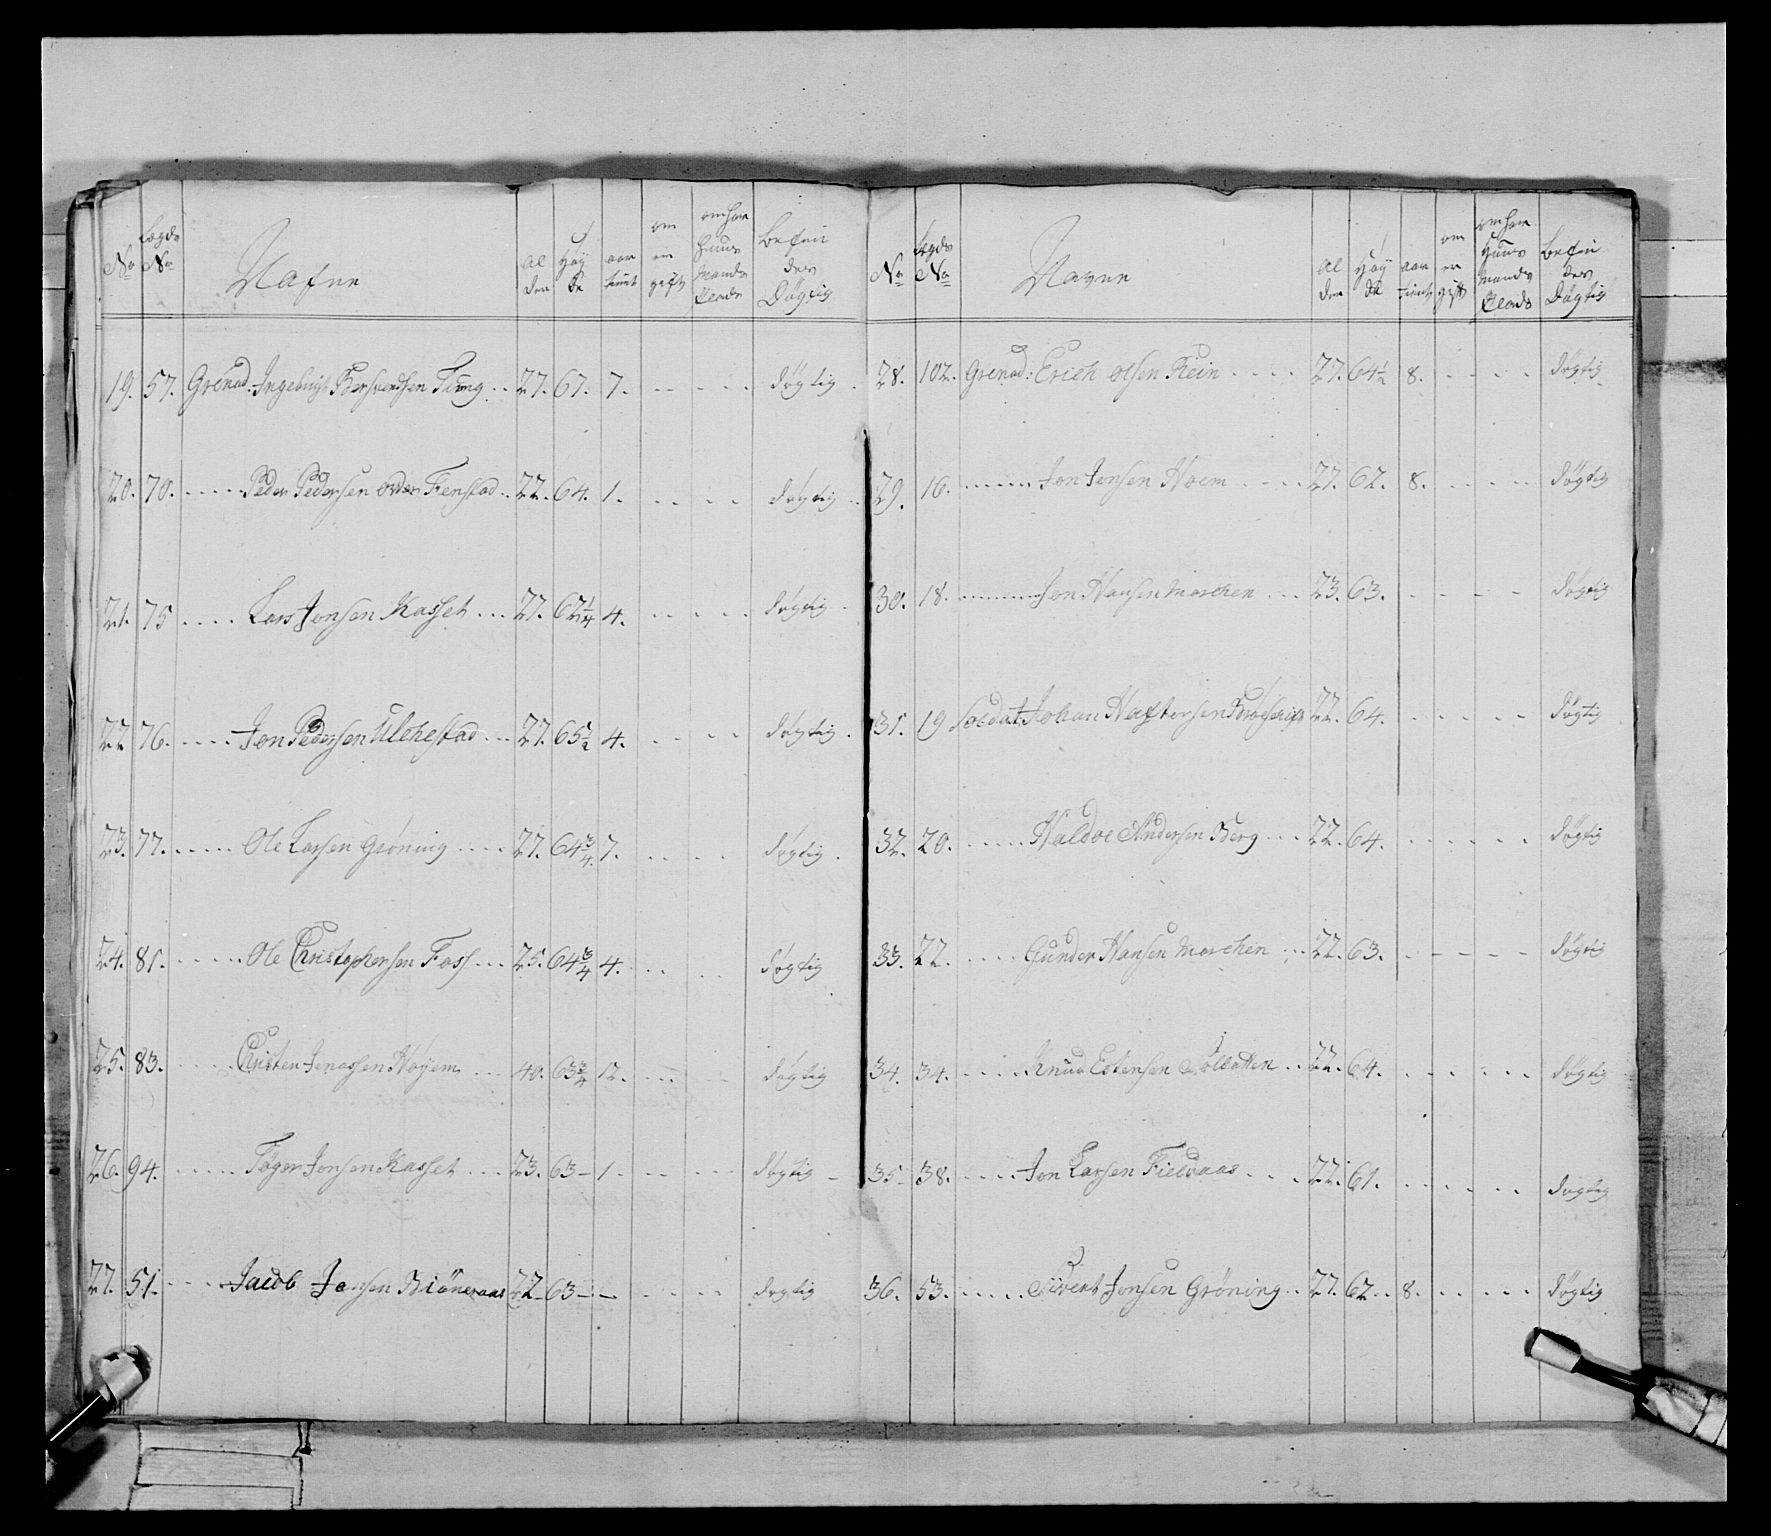 No Lægds No Nafne Al der Høy de aar tient om er gift om har Huus Mands Plads befin des Døgtig
19. 57. Grenad: Ingebrigt Bersvendsen Tung .. 27. 67. 7. døgtig
20. 70. Peder Pedersen Fenstad .. 22. 64. 1. døgtig
21. 75 Lars Jonsen Kasset ... 27. 62 1/4 4. døgtig
22 76. Jon Pedersen Ulchestad ... 27. 65 1/2 4. døgtig
23. 77. Ole Larsen Grøning 27. 64 3/4. 7. døgtig
24. 81. Ole Christophersen Foss ... 25. 64 3/4 4. døgtig
25. 83. Christen Jonassen Høyem 40. 63 3/4 12. døgtig
26. 94. Tøger Jonsen Kasset ... 23. 63 – 1. døgtig
27. 51. Jacob Jonsen 22 63 – – døgtig
No Lægds No Navne Al der Høy de aar tient om er gift om har Huus Mands Plads befin des Døgtig
28. 102. Grenad: Erich Olsen Rein 27. 64 1/2 8. døgtig
29. 16. Jon Jonsen Hoem 27. 62. 8. døgtig
30. 18. Jon Hansen Marchen ... 23. 63. døgtig
31. 19 Soldat Johan 22. 64. døgtig
32. 20. Haldoe Andersen Berg ... 22. 64. døgtig
33. 22. Gunder Hansen Marchen ... 22. 63. døgtig
34. 34. Knud Estensen .. 22. 64. døgtig
35 38. Jon Larsen Fieldaas 22. 61. døgtig
36. 53. Sivert Jonsen Grøning .. 27. 62 .. 8. døgtig